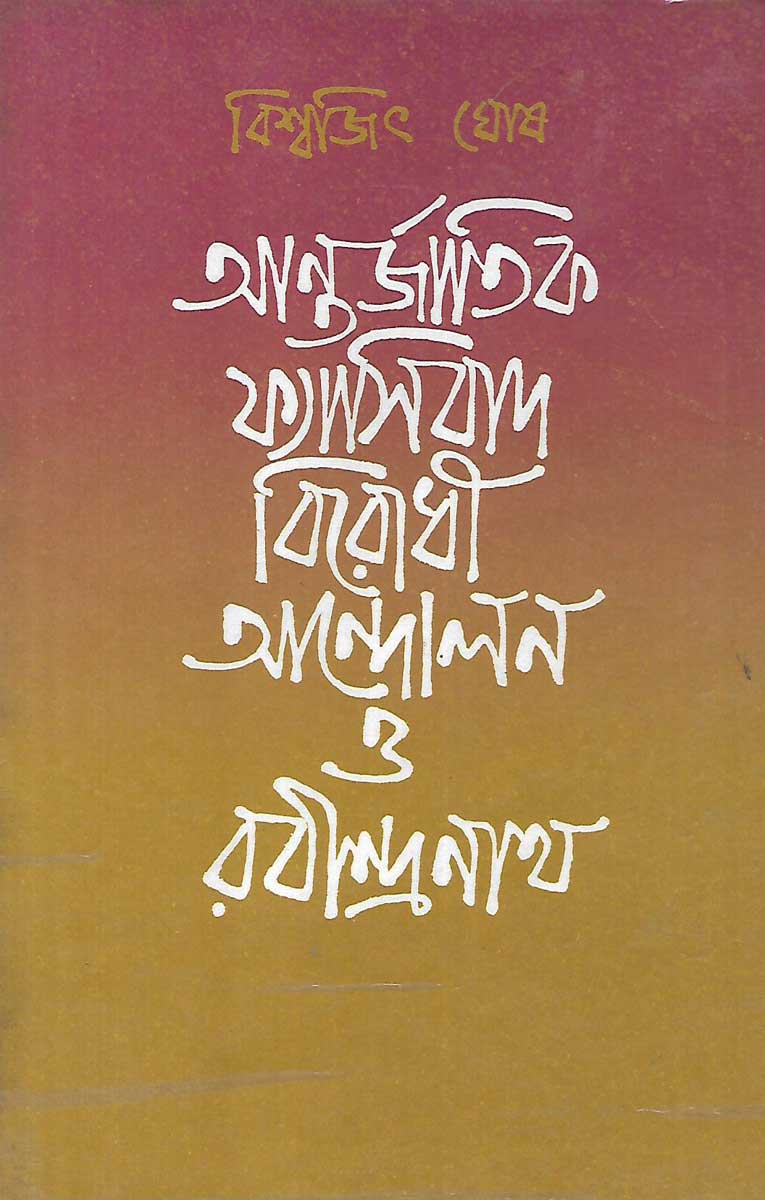 বিশ্বজিৎ ঘোষ
আন্তর্জাতিক
ফ্যাসিবাদ
বিরোধী
আন্দোলন
ও
রবীন্দ্রনাথ